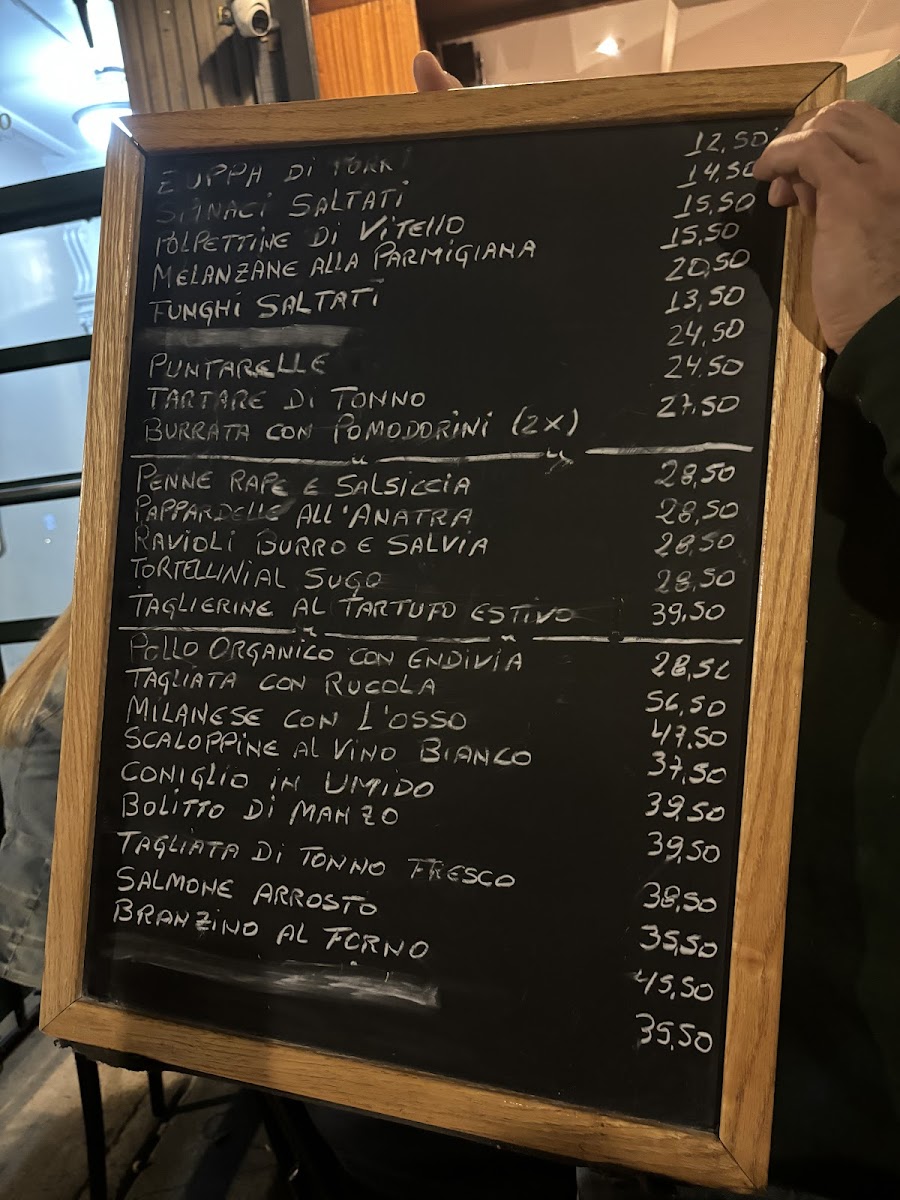 ZUPPA DI PORRI 12,50
SPINACI SALTATI 14,50
POLPETTINE DI VITELLO 15,50
MELANZANE ALLA PARMIGIANA 15,50
FUNGHI SALTATI 20,50
13,50
PUNTARELLE 24,50
TARTARE DI TONNO 24,50
BURRATA CON POMODORINI (2X) 27,50
PENNE RAPE E SALSICCIA 28,50
PAPPARDELLE ALL'ANATRA 28,50
RAVIOLI BURRO E SALVIA 28,50
TORTELLINI AL SUGO 28,50
TAGLIERINE AL TARTUFO ESTIVO 39,50
POLLO ORGANICO CON ENDIVIA 28,50
TAGLIATA CON RUCOLA 56,50
MILANESE CON L'OSSO 47,50
SCALOPPINE AL VINO BIANCO 37,50
CONIGLIO IN UMIDO 39,50
BOLITTO DI MANZO 39,50
TAGLIATA DI TONNO FRESCO 38,50
SALMONE ARROSTO 35,50
BRANZINO AL FORNO 45,50
35,50